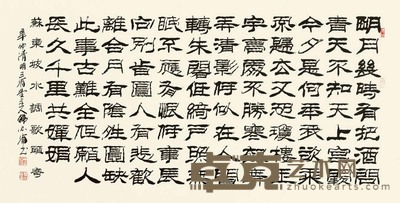 明月幾時有把酒問
青天不知天上宮闕
今夕是何年我欲乘
風歸去又恐瓊樓玉
宇高處不勝寒起舞
弄清影何似在人間
轉朱閣低綺戶照無
眠不應有恨何事長
向別時圓人有悲歡
離合月有陰晴圓缺
此事古難全但願人
長久千里共嬋娟
蘇東坡水調歌頭
清明三省堂主人
卓克艺术网
www.zhuokearts.com